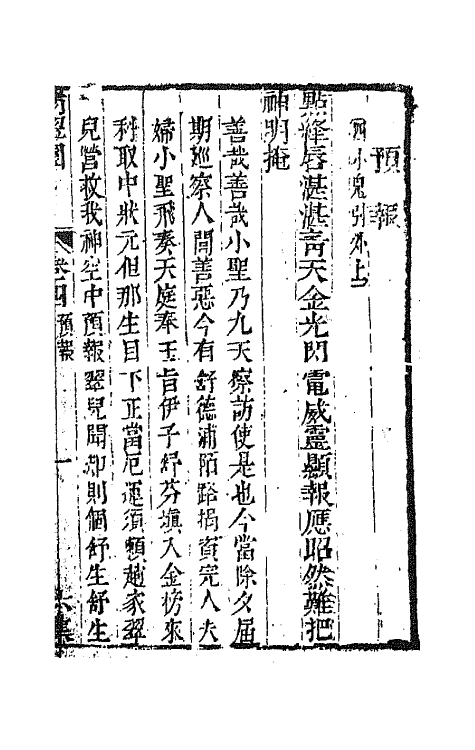 預報
四小鬼引外上
點絳唇湛湛青天金光閃電威靈顯報應昭然難把
神明掩
善哉善哉小聖乃九天察訪使是也今當除夕届
期巡察人間善惡今有舒德浦陌路捐資完人夫
婦小聖飛奏天庭奉玉旨伊子舒芬填入金榜來
科取中狀元但那生目下正當厄運須賴趙家翠
兒營救我神空中預報翠兒聞却則個舒生舒生
卷四 預報 一
六集